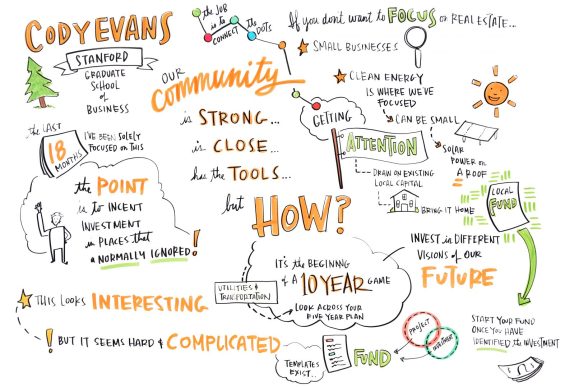 CODY EVANS
STANFORD
GRADUATE
SCHOOL
OF
BUSINESS
the JOB
is to
CONNECT the DOTS
If you don't want to FOCUS on REAL ESTATE...
SMALL BUSINESSES
CLEAN ENERGY
IS WHERE WE'VE
FOCUSED
CAN BE SMALL
SOLAR
POWER on
A ROOF
OUR
community
is STRONG...
is CLOSE...
has the TOOLS...
but
HOW?
GETTING
ATTENTION
DRAW on EXISTING
LOCAL CAPITAL
BRING IT HOME
LOCAL
FUND
the LAST
18
MONTHS
I'VE BEEN SOLELY
FOCUSED ON THIS
the POINT
is to INCENT
INVESTMENT
in PLACES that
are NORMALLY IGNORED!
INVEST in DIFFERENT
VISIONS of OUR
FUTURE
IT'S the BEGINNING
of A 10 YEAR GAME
LOOK ACROSS YOUR
FIVE YEAR PLAN
UTILITIES &
TRANSPORTATION
THIS LOOKS INTERESTING
! BUT IT SEEMS HARD & COMPLICATED
TEMPLATES
EXIST...
FUND
PROJECT
INVESTMENT
START YOUR FUND
ONCE YOU HAVE
IDENTIFIED the INVESTMENT